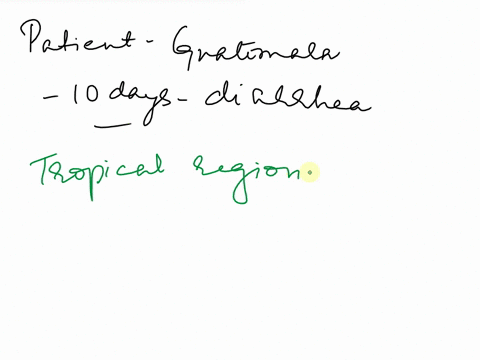 Patient - Guatemala
- 10 days - diarrhea
Tropical region.